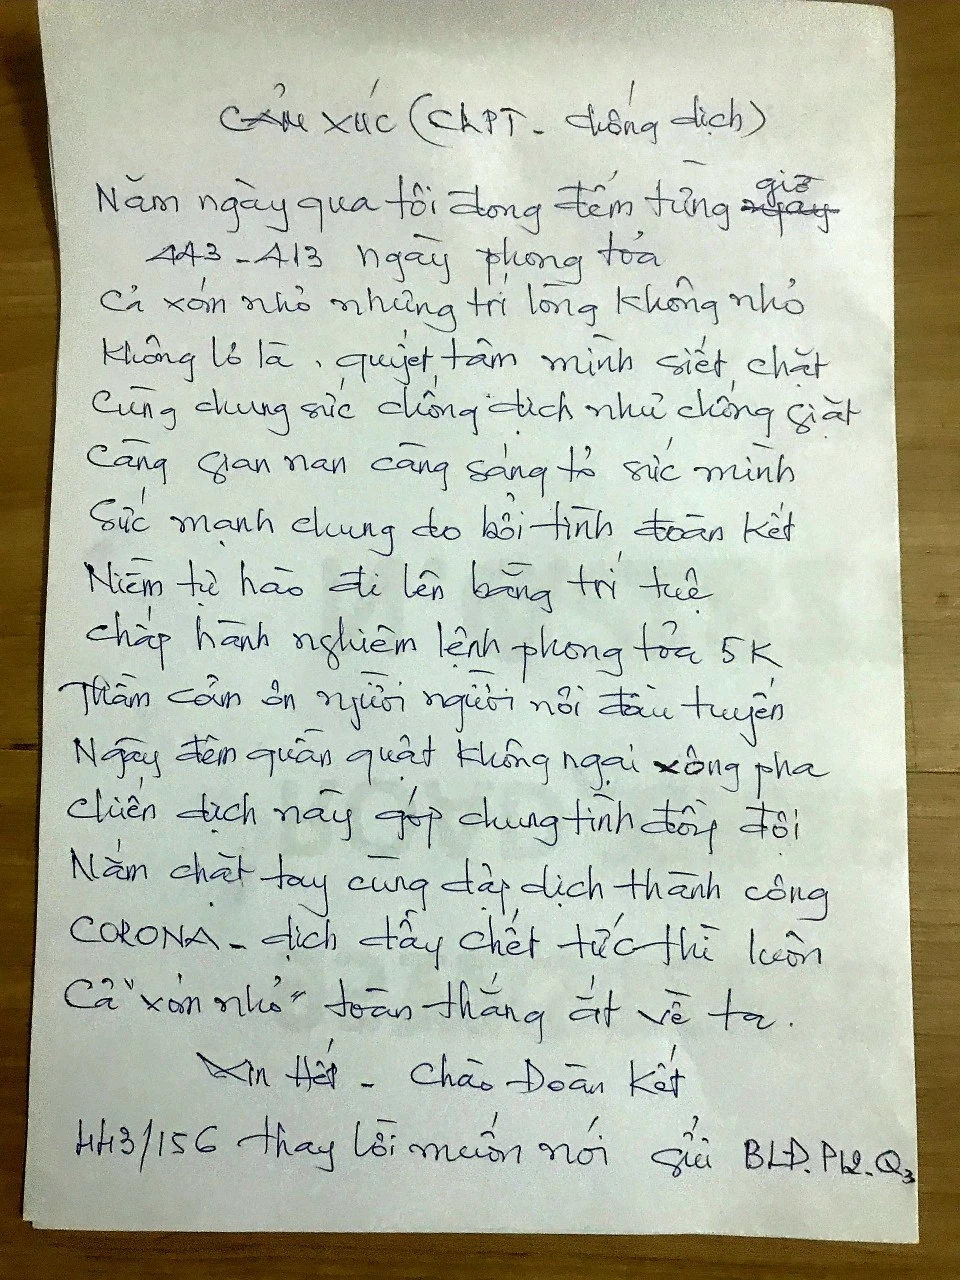 CẢM XÚC (CLPT - chống dịch)
Năm ngày qua tôi đong đếm từng giờ
443 - 413 ngày phong tỏa
Cả xóm nhỏ những trí lòng không nhỏ
Không lơ là, quyết tâm mình siết chặt
Cùng chung sức chống dịch như chống giặt
Càng gian nan càng sáng tỏ sức mình
Sức mạnh chung do bởi tình đoàn kết
Niềm tự hào đi lên bằng trí tuệ
Chấp hành nghiêm lệnh phong tỏa 5K
Thầm cảm ơn người người nơi đầu tuyến
Ngày đêm quần quật không ngại xông pha
Chiến dịch này góp chung tình đồng đội
Nắm chặt tay cùng dập dịch thành công
CORONA - dịch đầy chết tức thì luôn
Cả "xóm nhỏ" toàn thắng ắt về ta.
Xin Hết - Chào Đoàn Kết
443/156 thay lời muốn nói gửi BLĐ.P12.Q3